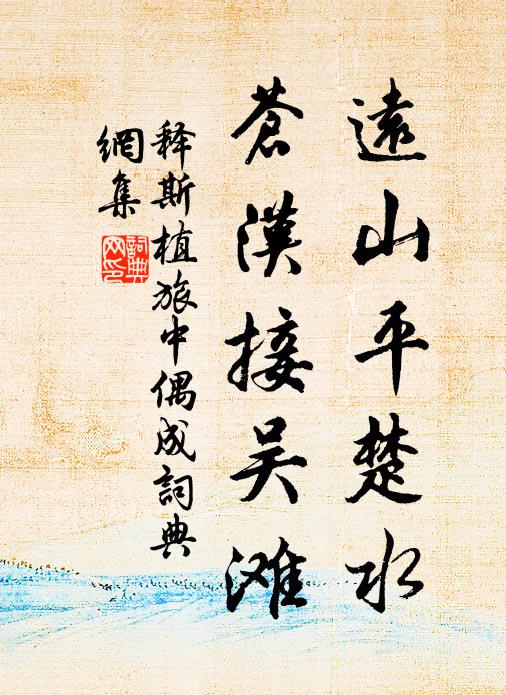 遠山平楚水
蒼漠接吴滩
释斯植旅中偶成詞典
網集
詞典
网印